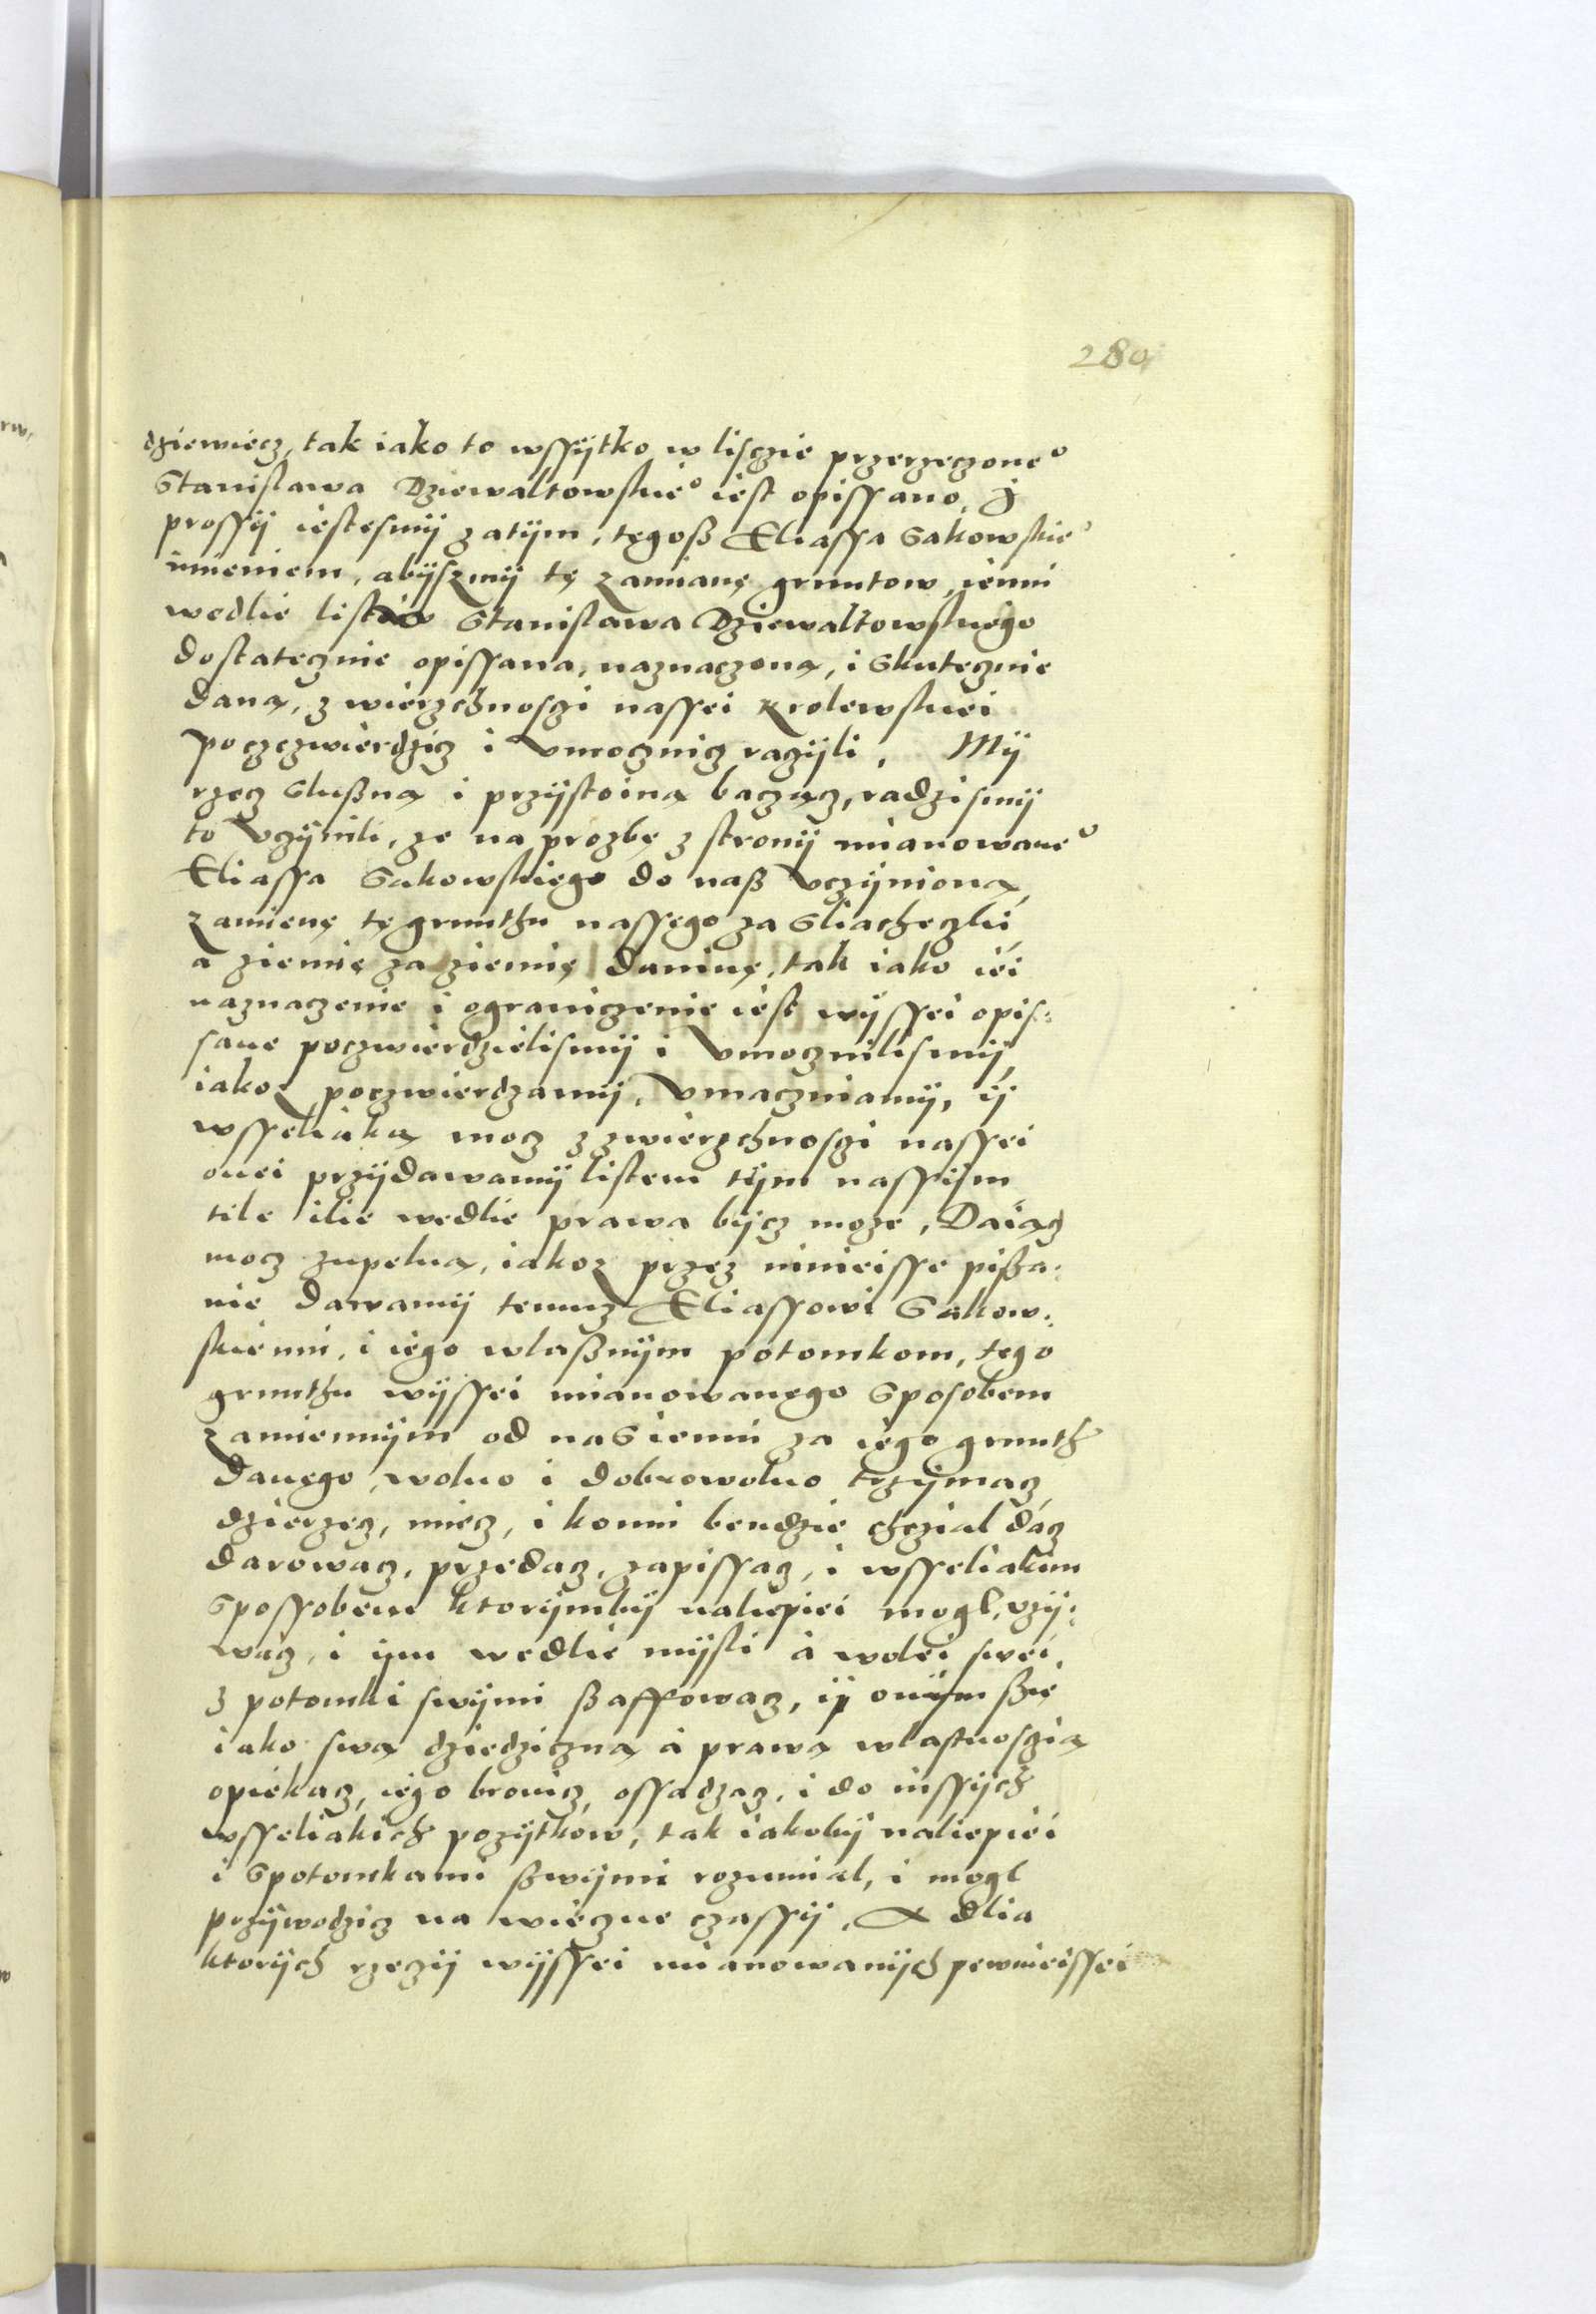 280
dziewięcz, tak iako to wssÿtko w lisczie przerzeczone°
Stanislawa Dziewaltowskie° iest opissano, J
prossÿ iestesmÿ zatÿm, tegoß Eliassa Sakowskie°
imieniem, abÿszmÿ tę zamianę gruntow, iemu
wedlie listow Stanislawa Dziewaltowskiego
dostatecznie opissana, naznaczoną, i skutecznie
daną, z wierzchnosczi nassei krolewskiei
poczczwierdzicz i vmocznicz raczÿli, Mÿ
rzecz slußną i przÿstoiną bacząc, radzismÿ
to vczÿnili, ze na prozbę z stronÿ mianowane°
Eliassa Sakowskiego do naß vczÿnioną,
zamienę tę grunthu nassego za sliacheczki,
a ziemię za ziemię daninę, tak iako iei
naznaczenie i ograniczenie iest wÿssei opis:
sane poczwierdzielismÿ i vmocznilismÿ,
iakoz poczwierdzamÿ, vmaczniamÿ, ÿ
wsseliaką mocz z zwierzchnosczi nassei
onei przÿdawamÿ listem tÿm nassÿm
tile ilie wedlie prawa bÿcz moze, Daiącz
mocz zupelną, iakoz przez ninieisse pißa:
nie dawamÿ temuz Eliassowi Sakow:
skiemu, i iego wlaßnÿm potomkom, tego
grunthu wÿssei mianowanego sposobem
zamiennÿm od nas iemu za iego grunth
danego, wolno i dobrowolno trzÿmacz,
dzierzecz, miecz, i komu bendzie chczial dacz
darowacz, przedacz, zapissacz, i wsseliakim
spossobem ktorÿmbÿ naliepiei mogl, vzÿ:
wacz, i ÿm wedlie mÿsli a wolei swei,
z potomki swÿmi ßaffowacz, ÿ onÿm ßie
iako swą dziedziczną a prawą wlastnosczią
opiekacz, iego bronicz, ossadzacz, i do inssÿch
wsseliakich pozÿtkow, tak iakobÿ naliepiei
i spotomkami ßwÿmi rozumial, i mogl
przÿwodzicz na wieczne czassÿ, A dlia
ktorÿch rzeczÿ wÿssei mianowanÿch pewnieissei